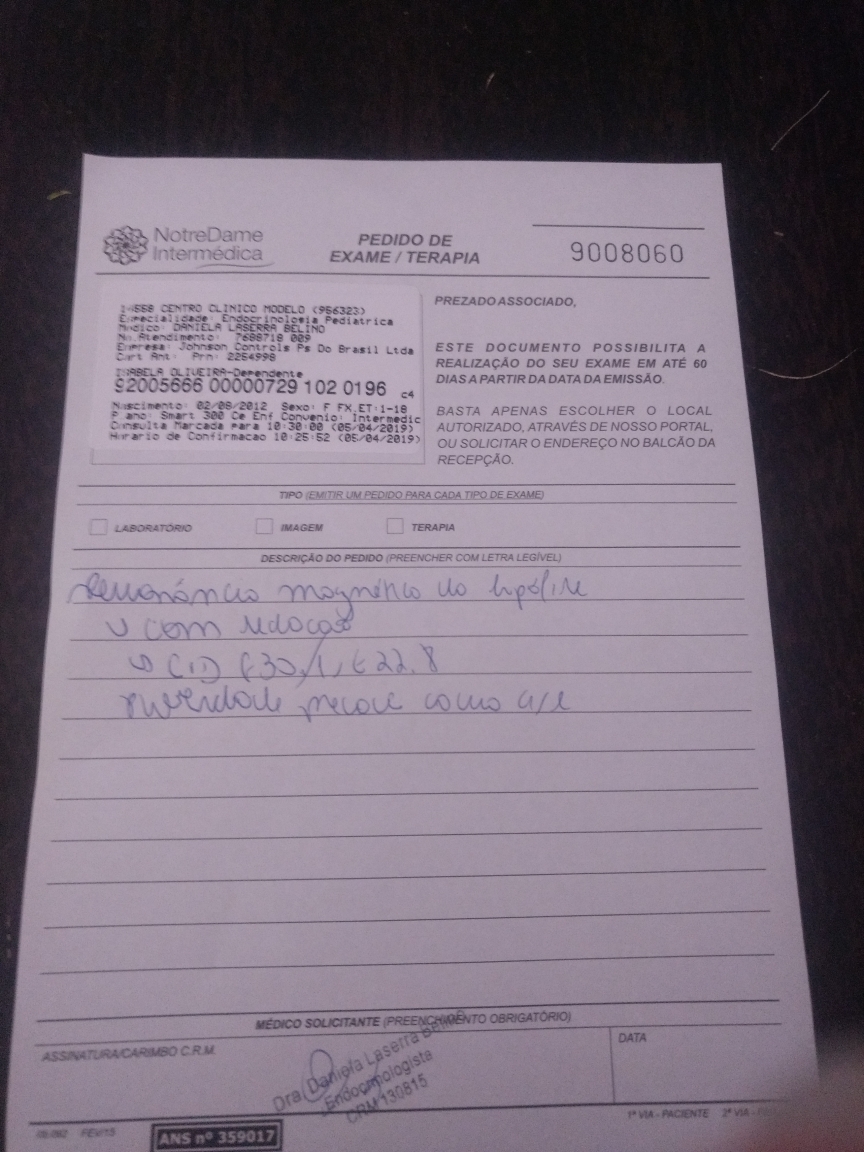 NotreDame
Intermédica
PEDIDO DE
EXAME / TERAPIA
9008060
CENTRO CLINICO MODELO (956323)
Especialidade: Endocrinologia Pediatrica
Medico: DANIELA LASERRA BELINO
No.Atendimento: 7688718 009
Empresa: Johnson Controls Ps Do Brasil Ltda
Cart Ant: Prn: 2254998
ISABELA OLIVEIRA-Dependente
92005666 00000729 102 0196 c4
Nascimento: 02/08/2012 Sexo: F FX.ET:1-18
Plano: Smart 300 Ce Enf Convenio: Intermedic
Consulta Marcada para 10:30:00 (05/04/2019)
Horario de Confirmacao 10:25:52 (05/04/2019)
PREZADO ASSOCIADO,
ESTE DOCUMENTO POSSIBILITA A
REALIZAÇÃO DO SEU EXAME EM ATÉ 60
DIAS A PARTIR DA DATA DA EMISSÃO.
BASTA APENAS ESCOLHER O LOCAL
AUTORIZADO, ATRAVÉS DE NOSSO PORTAL,
OU SOLICITAR O ENDEREÇO NO BALCÃO DA
RECEPÇÃO.
TIPO (EMITIR UM PEDIDO PARA CADA TIPO DE EXAME)
LABORATÓRIO IMAGEM TERAPIA
DESCRIÇÃO DO PEDIDO (PREENCHER COM LETRA LEGÍVEL)
Ressonância magnética de hipófise
com sedação
CID E30.1, E22.8
puberdade precoce
MÉDICO SOLICITANTE (PREENCHIMENTO OBRIGATÓRIO)
ASSINATURA/CARIMBO C.R.M.
DATA
Dra Daniela Laserra
Endocrinologista
CRM 130815
1ª VIA - PACIENTE 2ª VIA -
FEV/15
ANS nº 359017